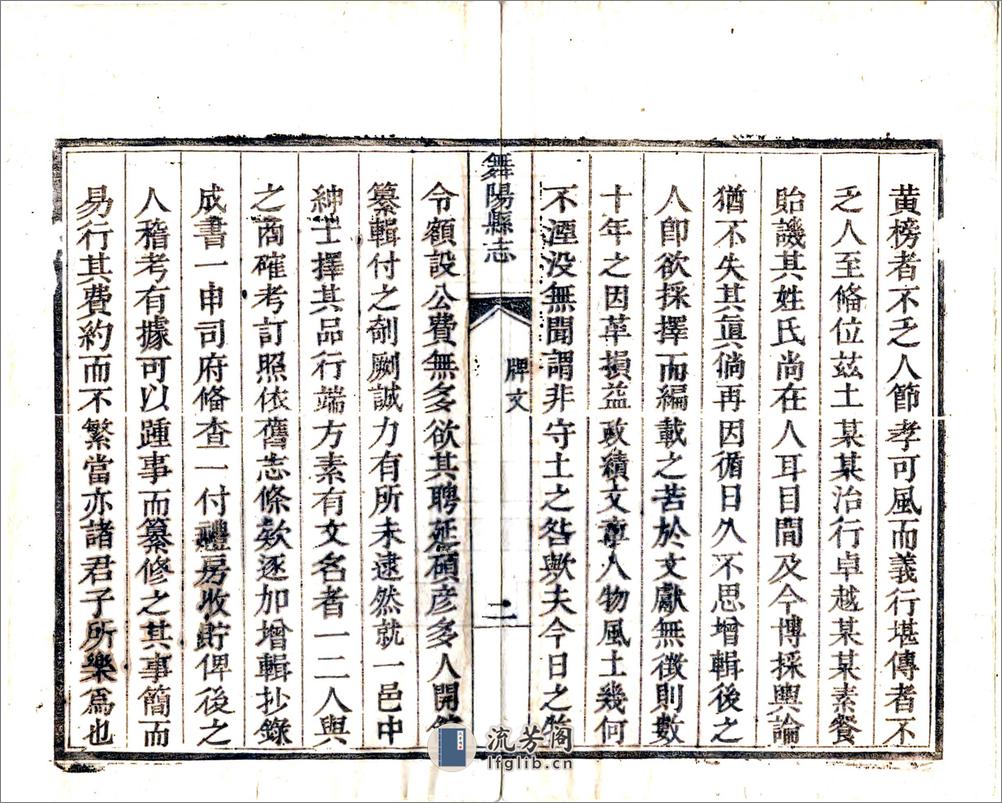 黃榜者不乏人節孝可風而義行堪傳者不
乏人至偹位茲土某某治行卓越某某素餐
貽譏其姓氏尚在人耳目間及今博採輿論
猶不失其眞倘再因循日久不思增輯後之
人卽欲採擇而編載之苦於文獻無徵則數
十年之因革損益政績文章人物風土幾何
不湮没無聞謂非守土之咎歟夫今日之牧
舞陽縣志
牌文
二
令額設公費無多欲其聘延碩彦多人開舘
纂輯付之剞劂誠力有所未逮然就一邑中
紳士擇其品行端方素有文名者一二人與
之商確考訂照依舊志條欵逐加增輯抄錄
成書一申司府偹查一付禮房收貯俾後之
人稽考有據可以踵事而纂修之其事簡而
易行其費約而不繁當亦諸君子所樂爲也
流芳阁
lfglib.cn